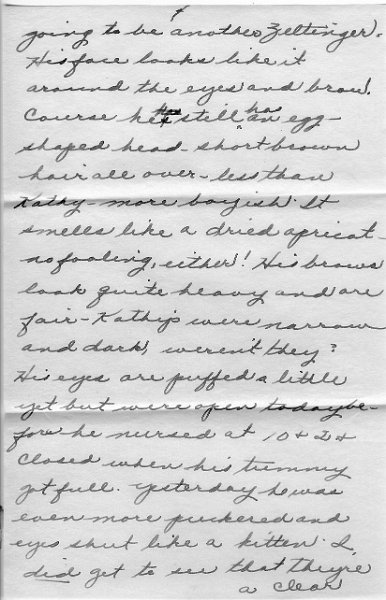 going to be another Zeltinger.
His face looks like it
around the eyes and brow.
Course he still has an egg-
shaped head - short brown
hair all over - less than
Kathy - more boyish. It
smells like a dried apricot -
no fooling, either! His brows
look quite heavy and are
fair - Kathy's were narrow
and dark, weren't they?
His eyes are puffed a little
yet but were open today be-
fore he nursed at 10 & 2 &
closed when his tummy
got full. Yesterday he was
even more puckered and
eyes shut like a kitten. I
did get to see that they're
a clear